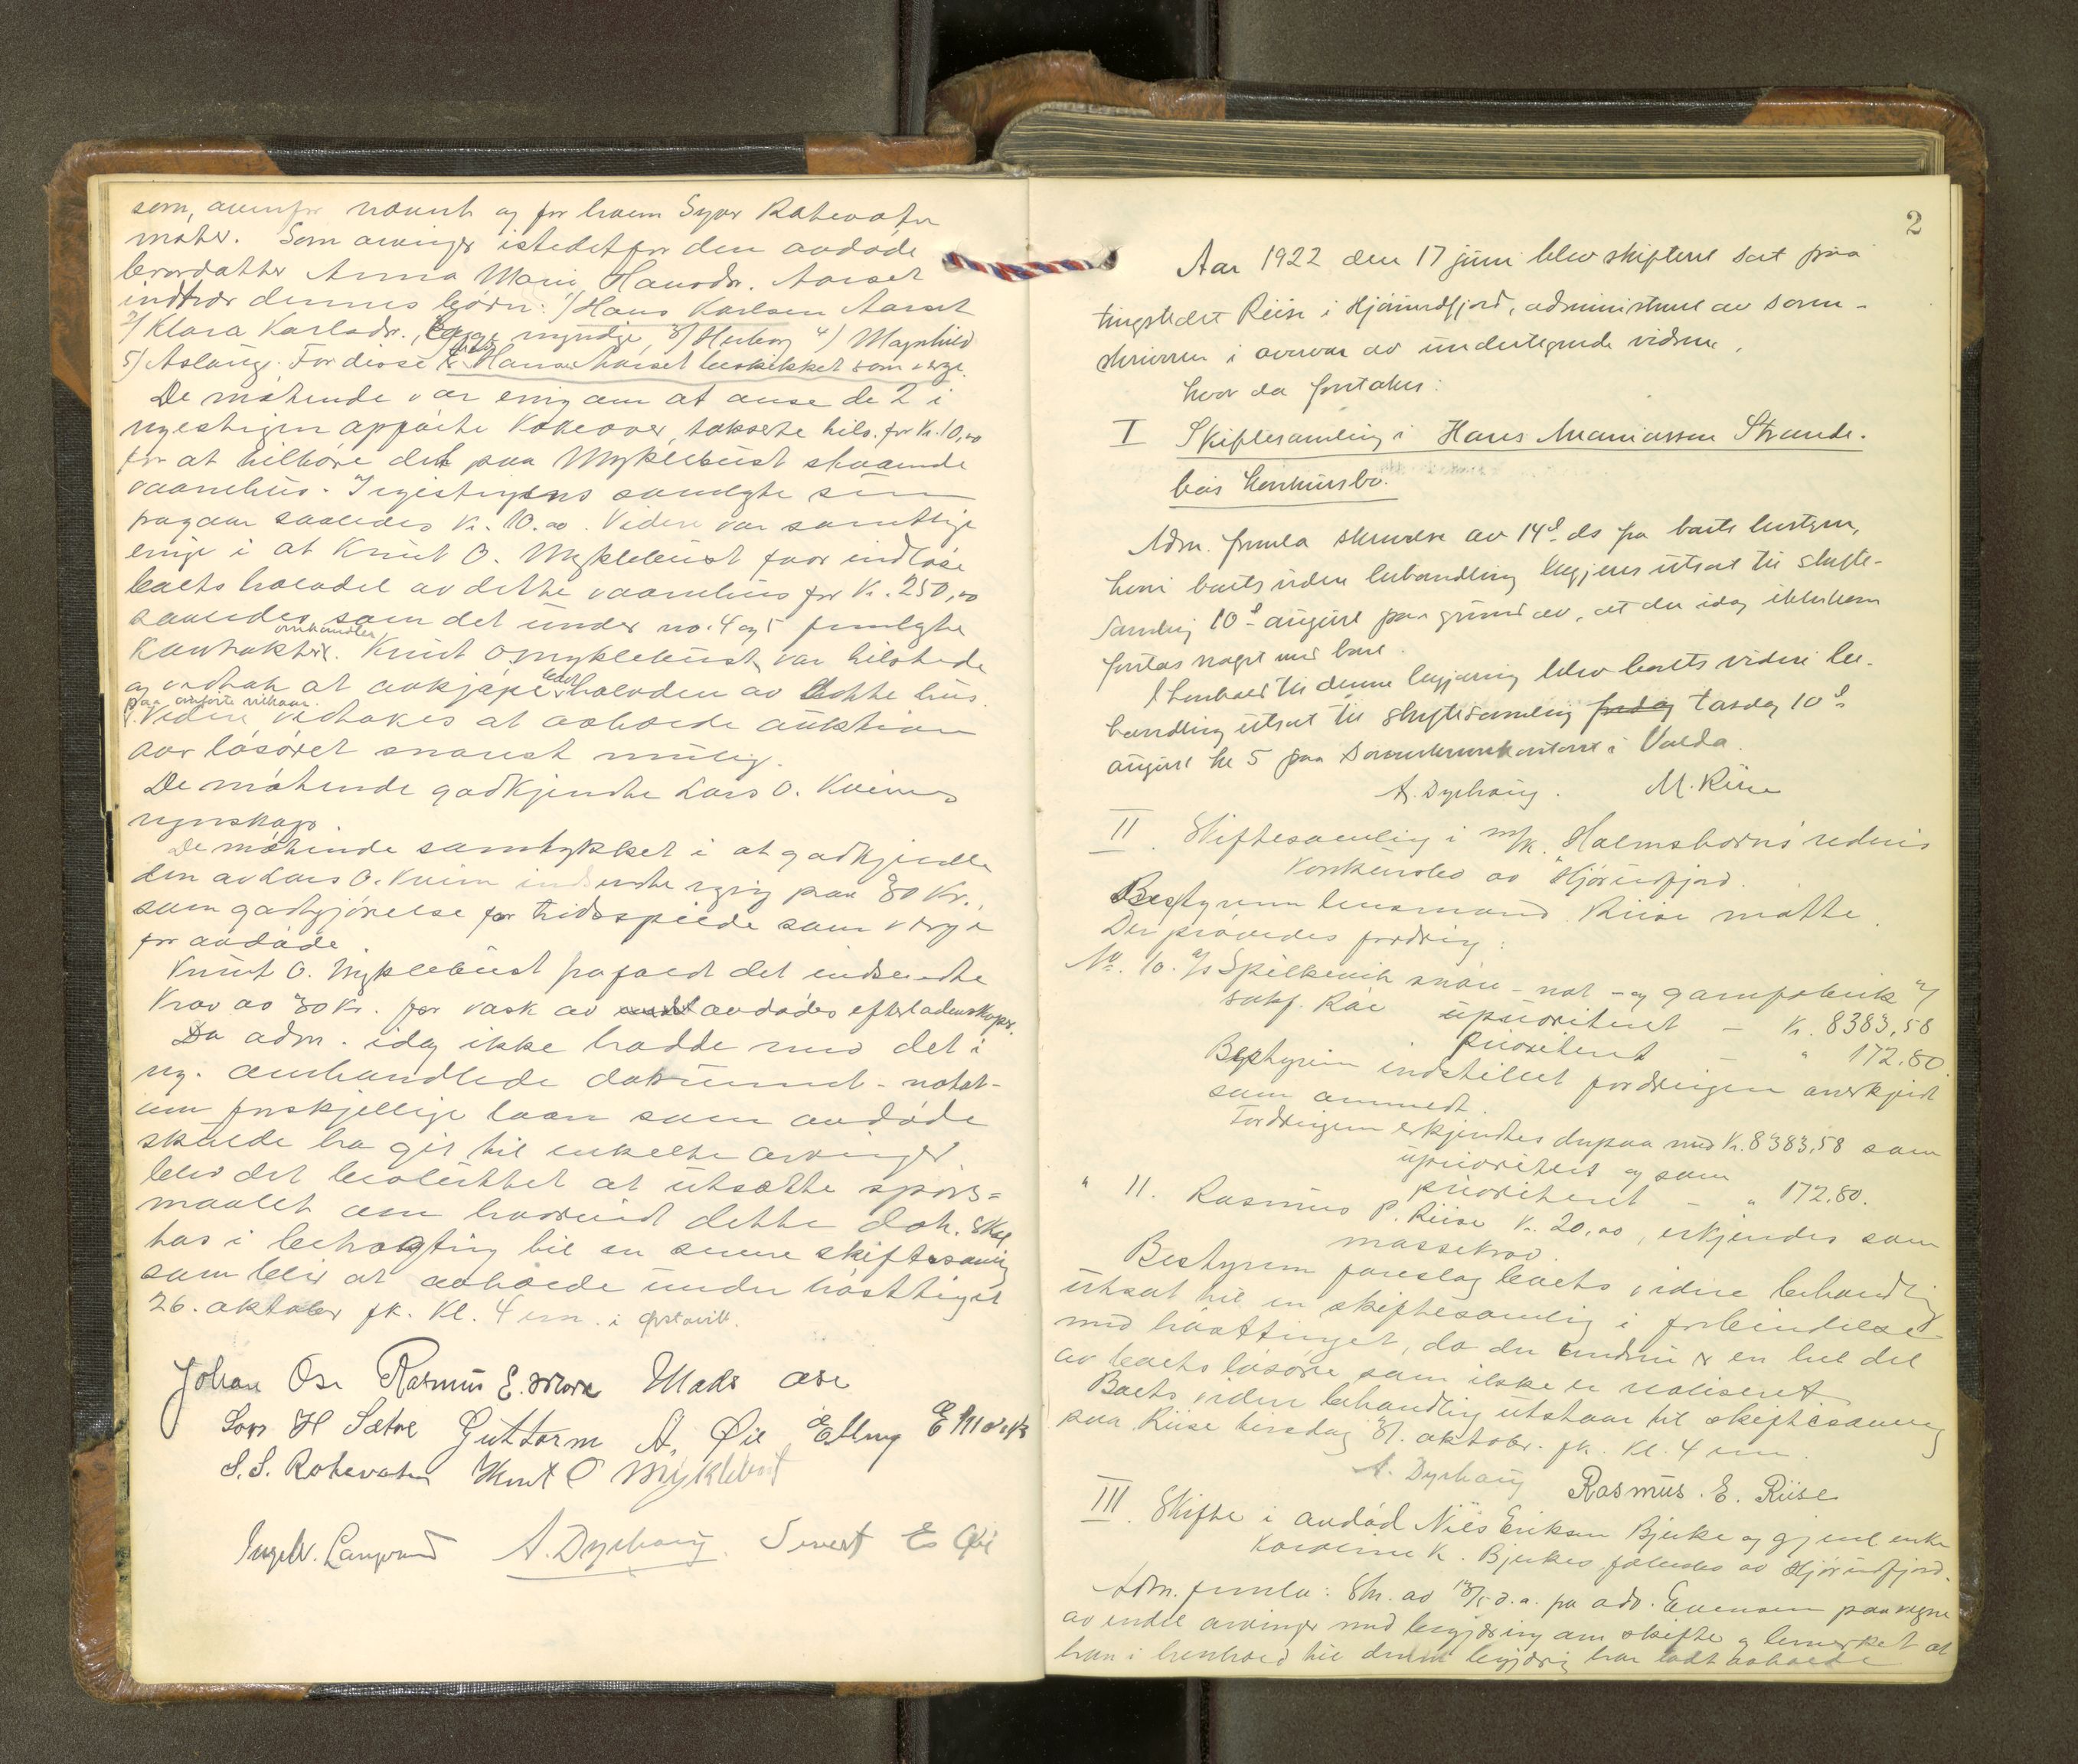 som, ovenfor nævnt og for hvem Syver Rotevatn
møter. Som arvinger istedetfor den avdøde
brordatter Anna Marie Hansdr. Aarset
indtrær dennes børn: 1/ Hans Karlsen Aarset
2/ Klara Karlsdr., begge myndige, 3/ Herborg 4/ Magnhild
5/ Aslaug. For disse er Hans Aarset beskikket som verge.
De møtende var enig om at anse de 2 i
registringen opførte kokeover, takserte tils. for kr. 10,00
for at tilhøre det paa Myklebust staaende
vaanehus. Registringens samlede sum
fragaar saaledes kr. 10.00. Videre var samtlige
enige i at Knut O. Myklebust faar indløse
boets halvdel av dette vaanehus for kr. 250,00
saaledes som det under no. 4 og 5 fremlagte
omhandler
kontrakter. Knut O Myklebust var tilstede
og vedtok at avkjøpe boet halvden av dette hus
paa anførte vilkaar.
Videre vedtokes at avholde auktion
over løsøret snarest mulig.
De møtende godkjendte Lars O. Kvien's
regnskap.
De møtende samtykket i at godkjende
den av Lars O. Kvien indsendte regning paa 80 kr.,
som godtgjørelse for tidsspilde som verge
for avdøde.
Knut O. Myklebust frafaldt det indsendte
krav av 30 kr. for vask av avdødes efterladenskaper.
Da adm. idag ikke hadde med det i
reg. omhandlede dokument - notat -
om forskjellige laan som avdøde
skulde ha git til enkelte arvinger
blev det besluttet at utsætte spørs=
maalet om hvorvidt dette dok. skal
tas i betragtning til en senere skiftesamling
som blir at avholde under høsttinget
26. oktober fk. kl. 4 em. i Ørstavik.
Johan Ose Rasmus E. Mork Mads Ose
Lars H Sætre Guttorm A. Øie Elling E Mork
S. S. Rotevatn Knut O Myklebust
Ingeb. Langvand A. Dyrhaug. Sivert E Øie
2
Aar 1922 den 17 juni blev skifteret sat paa
tingstedet Riise i Hjørundfjord, administreret av soren-
skriveren i overvær av undertegnede vidner.
Hvor da foretokes:
I Skiftesamling i Hans Ananiassen Strande-
bøs konkursbo.
Adm. fremla skrivelse av 14de ds fra boets bestyrer,
hvori boets videre behandling begjæres utsat til skifte-
samling 10de august paa grund av, at der idag ikke kan
foretas noget med boet.
I henhold til denne begjæring blev boets videre be-
handling utsat til skiftesamling fredag torsdag 10de
august kl 5 paa Sorenskriverkontoret i Volda.
A. Dyrhaug. M. Riise
II. Skiftesamling i m/k. Holmshorns rederis
konkursbo av Hjørundfjord.
Bestyreren lensmand Riise møtte.
Der prøvedes fordring:
No. 10. A/S Spilkevik snøre - not - og garnfabrik v/
sakf. Roe uprioritert - kr. 8383,58
prioritert - " 172.80.
Bestyreren indstillet fordringen anerkjendt
som anmeldt.
Fordringen erkjendtes derpaa med kr. 8383,58 som
uprioritert og som
prioritert - " 172.80.
" 11. Rasmus P. Riise kr. 20,00, erkjendes som
massekrav.
Bestyreren foreslog boets videre behandling
utsat til en skiftesamling i forbindelse
med høsttinget, da der endnu er en hel del
av boets løsøre som ikke er realisert
Boets videre behandling utstaar til skiftesamling
paa Riise tirsdag 31. oktober. fk. kl. 4 em
A. Dyrhaug Rasmus. E. Riise
III. Skifte i avdød Nils Eriksen Bjerke og gjenl. enke
Karoline K. Bjerkes fællesbo av Hjørundfjord.
Adm. fremla: Skr. av 13/5 d.a. fra adv. Evensen paa vegne
av endel arvinger med begjæring om skifte og bemerket at
han i henhold til denne begjæring har ladt avholde